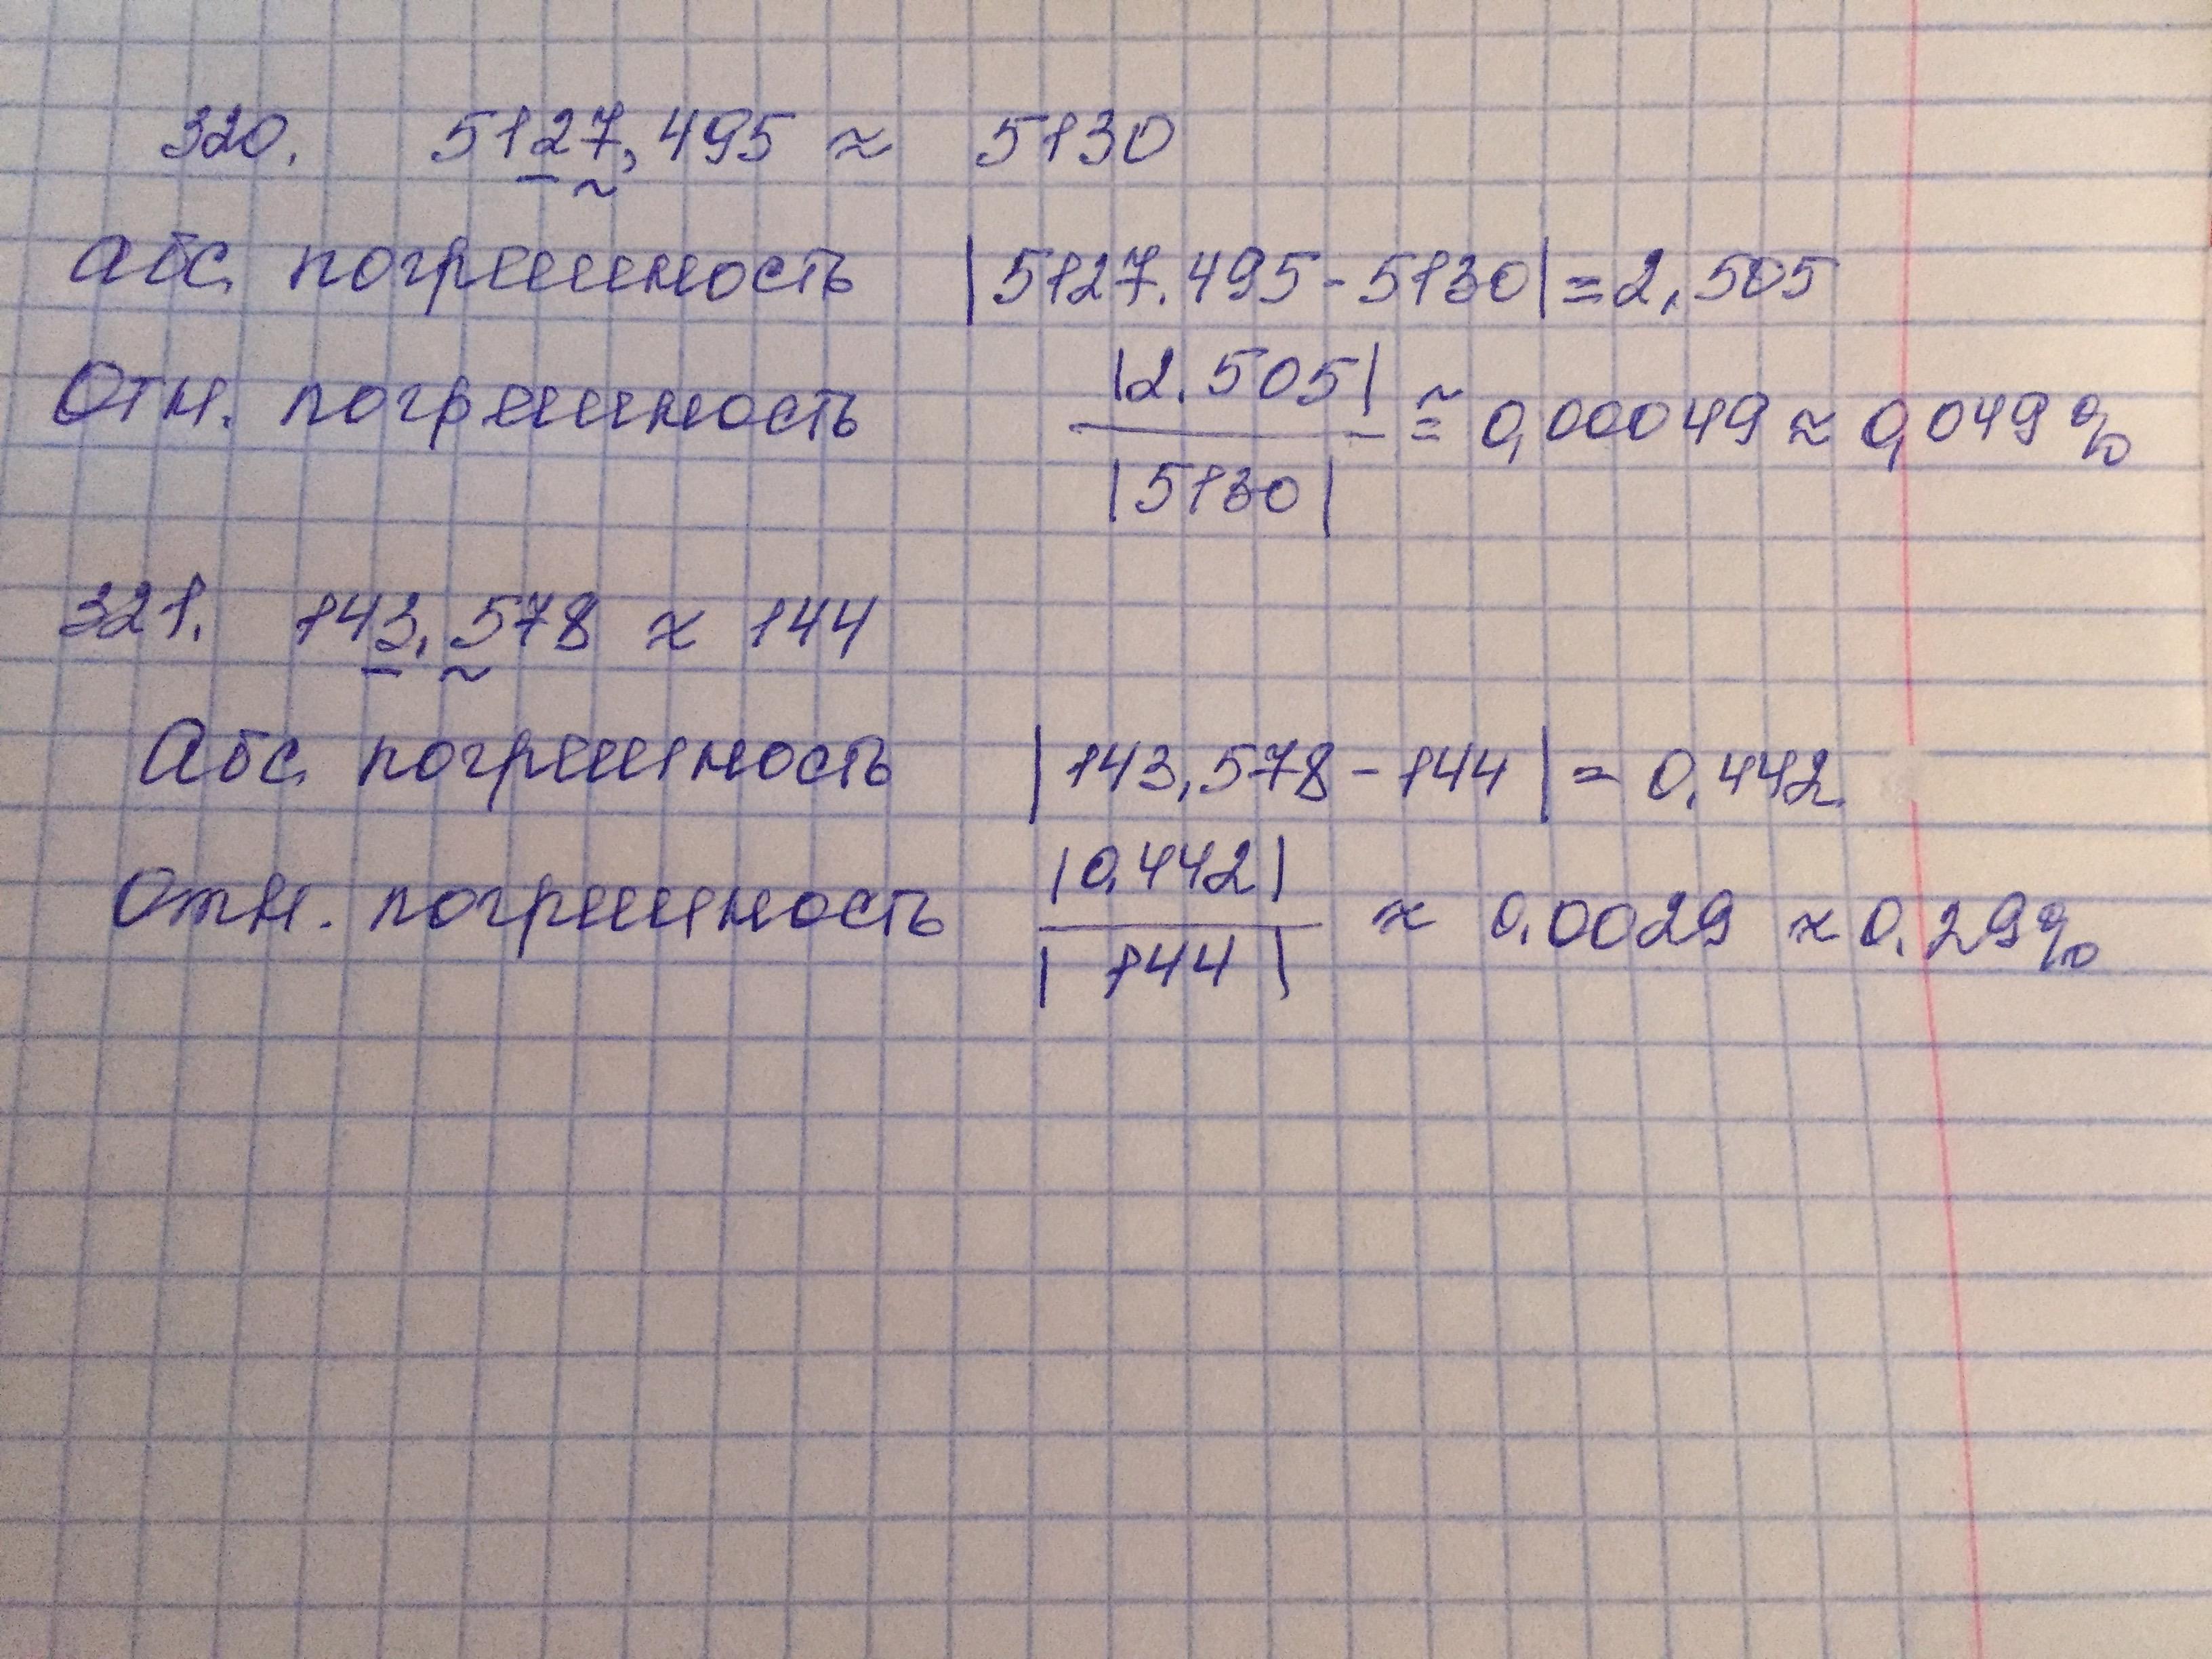 320. 5127,495 ≈ 5130
Абс. погрешность |5127.495-5130|=2,505
Отн. погрешность |2.505| / |5130| ≅ 0,00049 ≈ 0,049%
321. 143,578 ≈ 144
Абс. погрешность |143,578-144|=0,442
Отн. погрешность |0,442| / |144| ≈ 0,0029 ≈ 0.29%